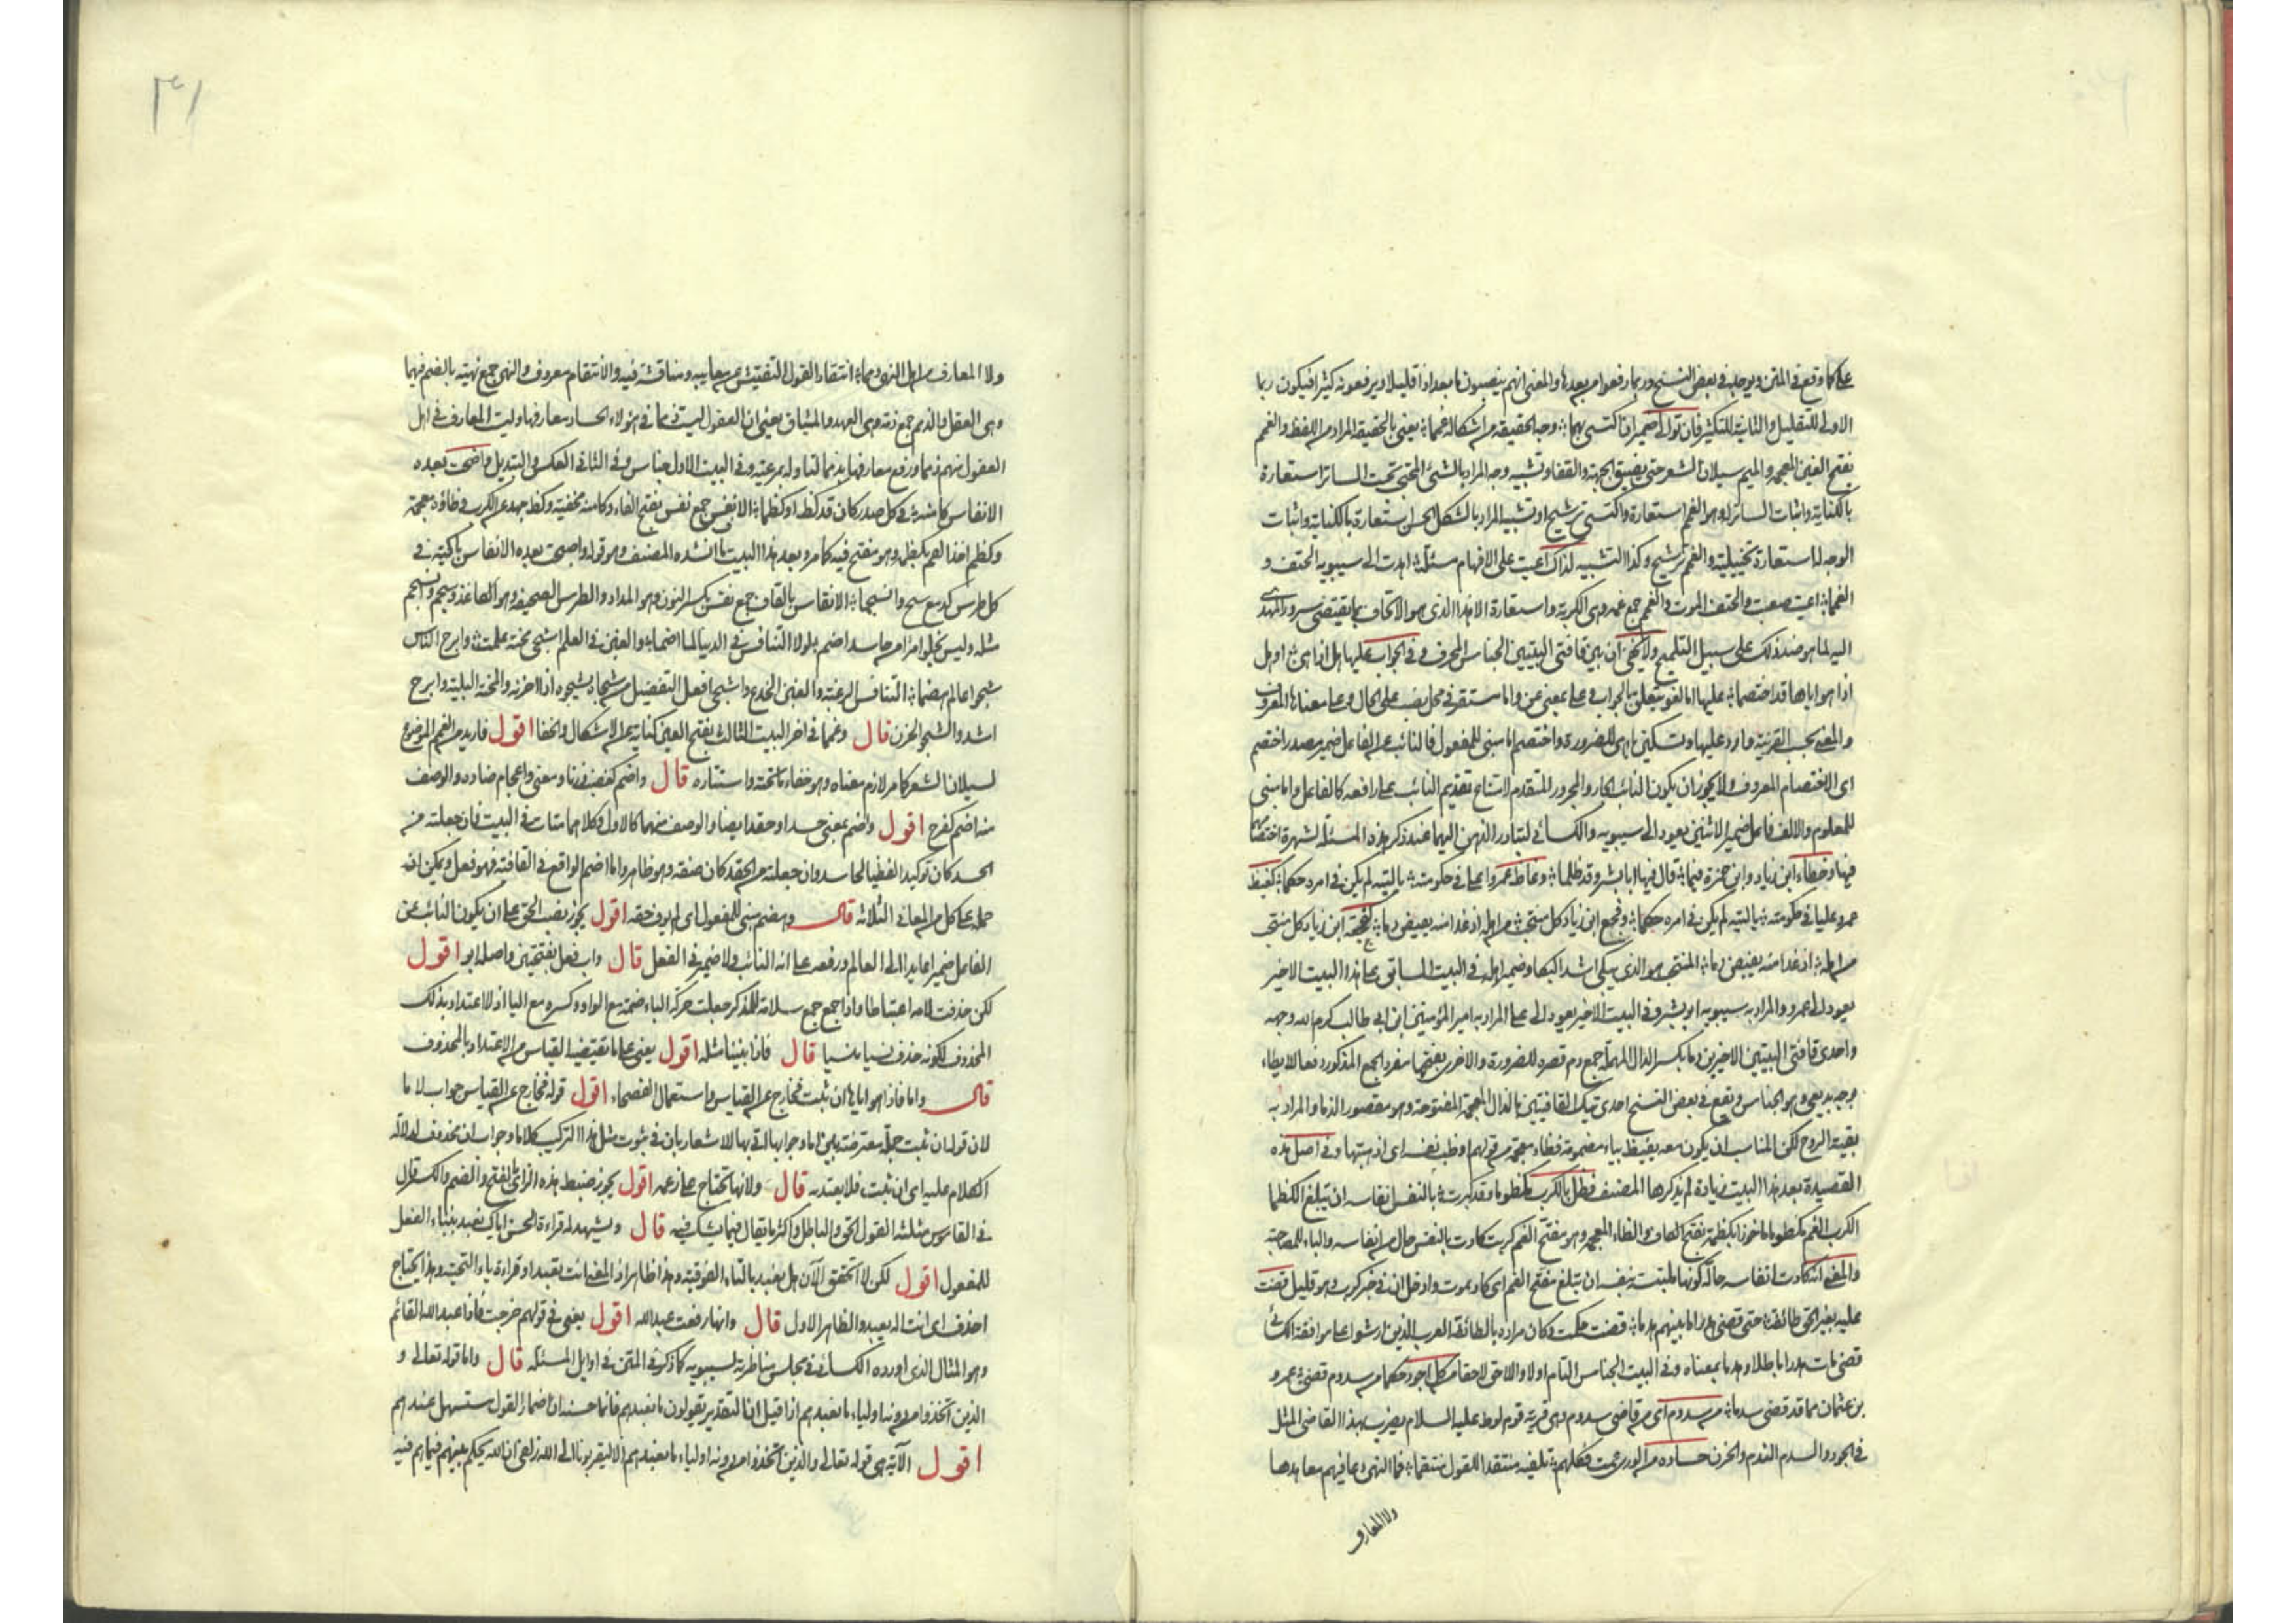 على ما وقع في المتن ويوجد في بعض النسخ وربما رفعوا من بعدها والمعنى انهم ينصبون ما بعد اذا قليلا ويرفعونه كثيرا فيكون ربما
الاولى للتقليل والثانية للتكثير فان تولى ضميران اكتسى بهما وجه الحقيقة من اشكاله غمما يعني بالحقيقة المراد من اللفظ والغمم
بفتح الغين المعجمة والميم سيلان الشعر حتى يضيق الجبهة والقفا وتشبيه وجه المراد بالشئ المختبي تحت الساتر استعارة
بالكناية واثبات الساتر له وهو الغمم استعارة واكتسى ترشيح او تشبيه المراد بالشكل الحسن استعارة بالكناية واثبات
الوجه لها استعارة تخييلية والغمم ترشيح وكذا التشبيه لذاك اعيت على الافهام مسئلة اهدت الى سيبويه الحتف و
الغمما اعيت صعبت والحتف الموت والغمم جمع غمه وهى الكربة واستعارة الاهدا الذى هو الاتحاف بما يقتضى سرور المهدى
اليه لما هو ضد ذلك على سبيل التلميح ولا يخفى ان بين قافتى البيتين الجناس المحرف وفى الجواب عليها هل اذا هى او هل
اذا هو اياها قد اختصما عليها اما لغو متعلق بالجواب فعلى بمعنى عن واما مستقر فى محل نصب على الحال وعلى معناها المعروف
والمعنى بحسب القرينة وارد عليها وتسكين ياء هى للضرورى واختصم اما مبنى للمفعول فالنائب عن الفاعل ضمير مصدر اختصم
اى الاختصام المعروف ولا يجوز ان يكون النائب الجار والمجرور المتقدم لامتناع تقديم النائب على رافعه كالفاعل واما مبنى
للمعلوم والالف فاعل ضمير الاثنين يعود الى سيبويه والكسائى لتبادر الذهن اليهما عند ذكر هذه المسئلة لشهرة اختصامهما
فيها وخطاء ابن زياد وابن حمزة فيما قال فيها ابا بشر وقد ظلما وغاظ عمروا على فى حكومته يا ليته لم يكن فى امره حكما كغيظ
عمرو عليا فى حكومته يا ليته لم يكن فى امره حكما وفجع ابن زياد كل منتحب من اهله اذ غدا منه يفيض دما كفجعة ابن زياد كل منتحب
من اهله اذ غدا منه يفيض دما المنتحب هو الذى يبكى اشد البكا وضمير اهله فى البيت السابق على هذا البيت الاخير
يعود الى عمرو والمراد به سيبويه ابو بشر وفى البيت الاخير يعود الى على المراد به امير المؤمنين ابن ابى طالب كرم الله وجهه
واحدى قافتى البيتين الاخيرين دما بكسر الدال المهملة جمع دم قصره للضرورة والاخرى بفتحها مفرد الجمع المذكور دفعا للايطاء
بوجه بديعى وهو الجناس وتقع فى بعض النسخ احدى تينك القافيتين بالذال المعجمة المفتوحة وهو مقصور الذماء والمراد به
بقية الروح لكن المناسب ان يكون معه يفيظ بياء مضمومة فظاء معجمة من قولهم اوظب نفسه اى اذهبتها وفى اصل هذه
القصيدة بعد هذا البيت زيادة لم يذكرها المصنف فظل بالكرب مكظوما وقد كربت بالنفس انفاسه ان تبلغ الكظما
الكرب الغم مكظوما ماخوذ الكظمة بفتح الكاف والظاء المعجمة وهو مفتح الفم كربت كادت بالنفس حال من انفاسه والباء للمصاحبة
والمعنى انه كادت انفاسه حالة كونها ملتبسة بنفسه ان تبلغ مفتح الفم اى كاد يموت وادخل ان فى خبر كرب وهو قليل قضت
عليه بغير الحق طائفة حتى قضى هدرا ما بينهم هدما قضت حكمت وكان مراده بالطائفة العرب الذين ارشوا على موافقة الكسائى
قضى مات هدرا باطلا وهدما بمعناه وفى البيت الجناس التام اولا واللاحق لاحقا من كل اجور حكما من سدوم قضى عمرو
بن عثمان مما قد قضى سدما من سدوم اى من قاضى سدوم وهى قرية قوم لوط عليه السلام يضرب بهذا القاضى المثل
فى الجور والسدم الندم والحزن حساده من الورى عمت فكلهم تلفيه منتقدا للقول منتقما فما النهى ذمما فيهم معاهدها
ولا المعارف
٣١
ولا المعارف من اهل النهى ذمما انتقاد القول التفتيش عن معايبه ومناقشة فيه والانتقام معروف والنهى جمع نهية بالضم فيهما
وهى العقل والذمم جمع ذمة وهى العهد والميثاق يعنى ان العقول ليست ذمما فى هؤلاء الحساد معارفها وليست المعارف فى اهل
العقول منهم ذمما ورفع معارفها بذمما لتاوله بمرعية وفى البيت الاول جناس وفى الثانى العكس والتبديل واضحت بعده
الانفاس كامنة فى كل صدر كان قد كظ او كظما الانفس جمع نفس بفتح الفاء وكامنة مخفية وكظ جهد من الكرب فظاؤه معجمة
وكظم اخذ الغم بكظمه وهو مفتح فيه كما مر وبعد هذا البيت ما انشده المصنف وهو قوله واصبحت بعده الانقاس باكية فى
كل طرس كدمع سح وانسجما الانقاس بالقاف جمع نقس بكسر النون وهو المداد والطرس الصحيفة وهو الكاغذ وسجم وانسجم
مثله وليس يخلو امرؤ من حاسد اضم لولا التنافس فى الدنيا لما اضما والغبن فى العلم اشجى محنة علمت وابرح الناس
شجوا عالم هضما التنافس الرغبة والغبن الخدع واشجى افعل التفضيل من شجاه يشجوه اذا احزنه والمحنة البلية وابرح
اشد والشجو الحزن قال وغمما فى اخر البيت الثالث بفتح الغين كناية عن الاشكال والخفا اقول فاريد من الغمم الموضوع
لسيلان الشعر كما مر لازم معناه وهو خفاء ما تحته واستتاره قال واضم كغضب وزنا ومعنى واعجام ضاده والوصف
منه اضم كفرح اقول واضم بمعنى حسدا وحقدا ايضا والوصف منهما كالاول وكلاهما متات فى البيت فان جعلته من
الحسد كان توكيدا لفظيا لحاسد وان جعلته من الحقد كان صفة وهو ظاهر واما اضم الواقع فى القافية فهو فعل ويمكن انه
حمله على كل من المعانى الثلاثة قال وهضم مبنى للمفعول اى لم يوف حقه اقول يجوز نصب الحق على ان يكون النائب عن
الفاعل ضميرا عايدا الى العالم ورفعه على انه النائب ولا ضمير فى الفعل قال واب فعل بفتحتين واصله ابو اقول
لكن حذفت لامه اعتباطا واذا جمع جمع سلامة للمذكر جعلت حركة الباء ضمة مع الواو وكسرة مع اليا اذ لا اعتداد بذلك
المحذوف لكونه حذف نسيا منسيا قال فاذا بنينا مثله اقول يعنى على ما يقتضيه القياس من الاعتداد بالمحذوف
قال واما فاذا هو اياها ان ثبت فخارج عن القياس واستعمال الفصحاء اقول قوله فخارج عن القياس جواب لاما
لان قوله ان ثبت جملة معترضة بين اما وجوابها اتى بها للاشعار بان فى ثبوت مثل هذا التركيب كلاما وجواب ان محذوف لدلالة
الكلام عليه اى ان ثبت فلا يعتد به قال ولانها تحتاج على زعمه اقول يجوز ضبط هذه الزاى بالفتح والضم والكسر قال
فى القاموس مثلثه القول الحق والباطل واكثر ما يقال فيما يشك فيه قال ويشهد له قراءة الحسن اياك يعبد ببناء الفعل
للمفعول اقول لكن لا اتحقق الآن هل يعبد بالتاء الفوقية وهذا ظاهر اذ المعنى انت تعبد او قراءة ياء التحتية وهذا يحتاج
احذف اى انت اله يعبد والظاهر الاول قال وانها رفعت عبد الله اقول يعنى فى قولهم خرجت فاذا عبد الله القائم
وهو المثال الذى اورده الكسائى فى مجلس مناظرته لسيبويه كما ذكره فى المتن فى اوايل المسئلة قال واما قوله تعالى و
الذين اتخذوا من دونه اولياء ما نعبدهم اذا قيل ان التقدير يقولون ما نعبدهم فانما حسنه ان اضمار القول مستسهل عندهم
اقول الآية هى قوله تعالى والذين اتخذوا من دونه اولياء ما نعبدهم الا ليقربونا الى الله زلفى ان الله يحكم بينهم فيما هم فيه